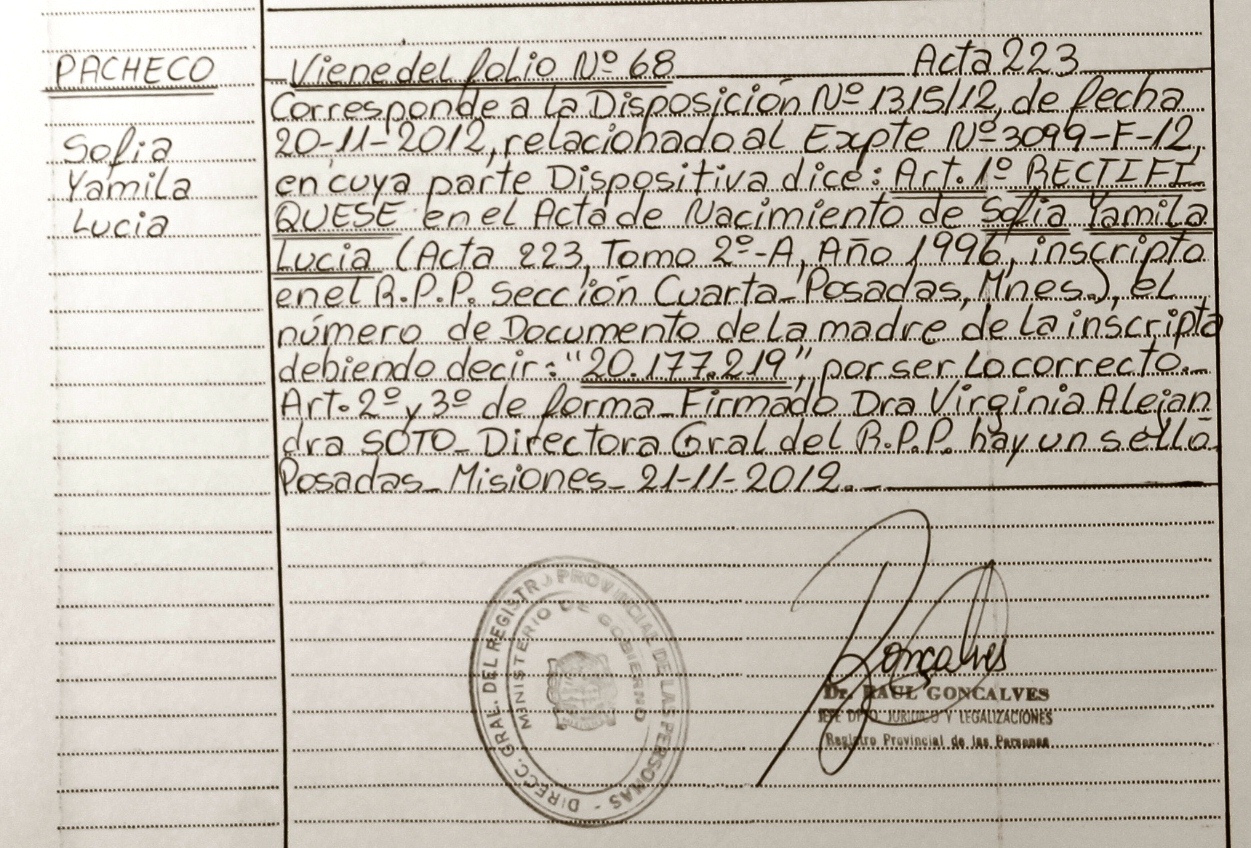 PACHECO
Sofia
Yamila
Lucia
Viene del folio Nº 68 Acta 223
Corresponde a la Disposición Nº 1315/12, de fecha
20-11-2012, relacionado al Expte Nº 3099-F-12,
en cuya parte Dispositiva dice: Art. 1º RECTIFI
QUESE en el Acta de Nacimiento de Sofia Yamila
Lucia (Acta 223, Tomo 2º-A, Año 1996, inscripto
en el R.P.P. Sección Cuarta-Posadas, Mnes.), el
número de Documento de la madre de la inscripta
debiendo decir: "20.177.219", por ser lo correcto.-
Art. 2º y 3º de forma-Firmado Dra Virginia Alejan
dra SOTO- Directora Gral del R.P.P. hay un sello.
Posadas- Misiones- 21-11-2012.-
DIRECC. GRAL. DEL REGISTRO PROVINCIAL DE LAS PERSONAS -
MINISTERIO DE GOBIERNO
Gonçalves
Dr. RAUL GONCALVES
JEFE DPTO. JURIDICO Y LEGALIZACIONES
Registro Provincial de las Personas